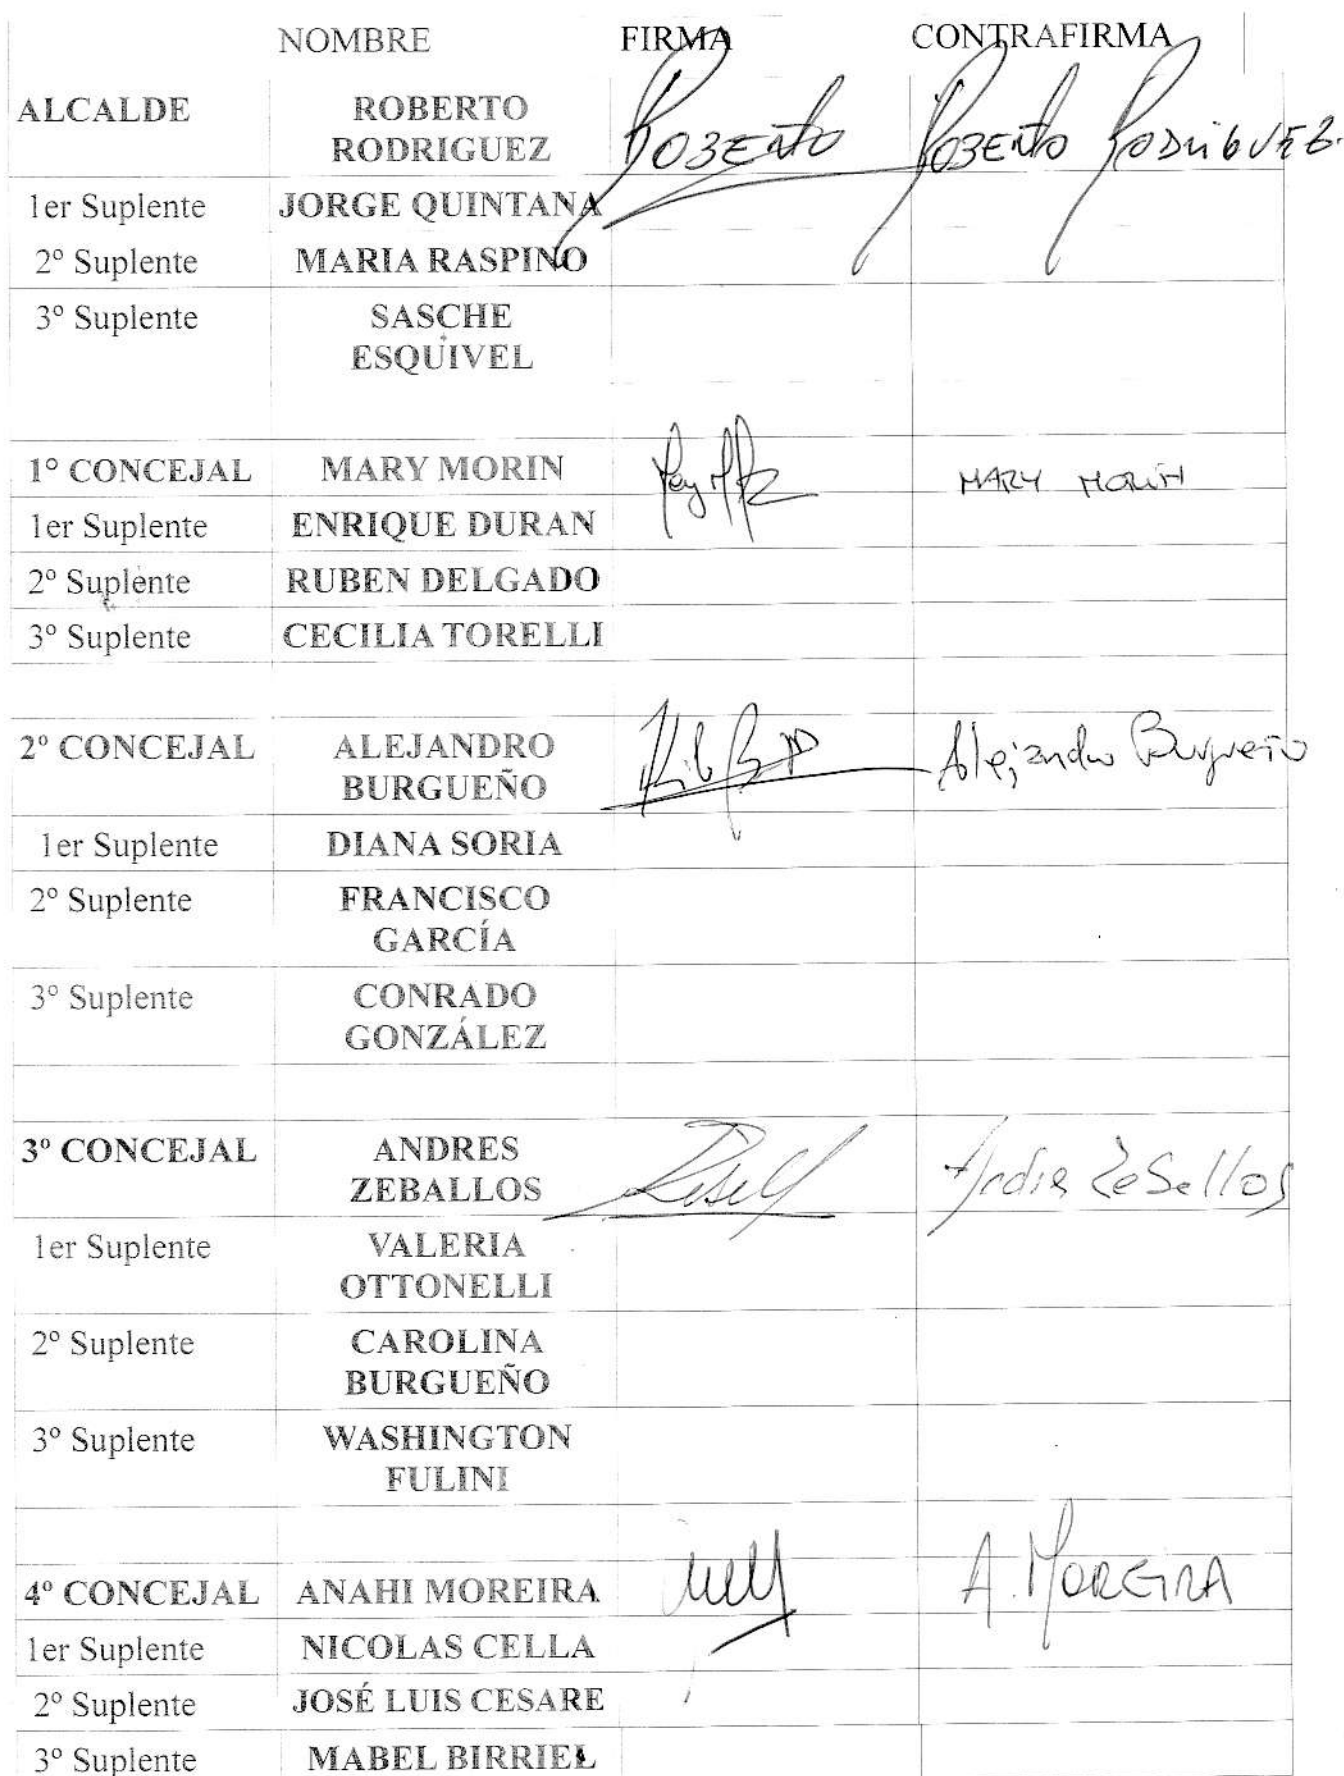 NOMBRE FIRMA CONTRAFIRMA
ALCALDE ROBERTO RODRIGUEZ Roberto Roberto Rodriguez.
1er Suplente JORGE QUINTANA
2º Suplente MARIA RASPINO
3º Suplente SASCHE ESQUIVEL
1º CONCEJAL MARY MORIN MARY MORIN
1er Suplente ENRIQUE DURAN
2º Suplente RUBEN DELGADO
3º Suplente CECILIA TORELLI
2º CONCEJAL ALEJANDRO BURGUEÑO Alejandro Burgueño
1er Suplente DIANA SORIA
2º Suplente FRANCISCO GARCÍA
3º Suplente CONRADO GONZÁLEZ
3º CONCEJAL ANDRES ZEBALLOS Andres Zeballos
1er Suplente VALERIA OTTONELLI
2º Suplente CAROLINA BURGUEÑO
3º Suplente WASHINGTON FULINI
4º CONCEJAL ANAHI MOREIRA A. MOREIRA
1er Suplente NICOLAS CELLA
2º Suplente JOSÉ LUIS CESARE
3º Suplente MABEL BIRRIEL